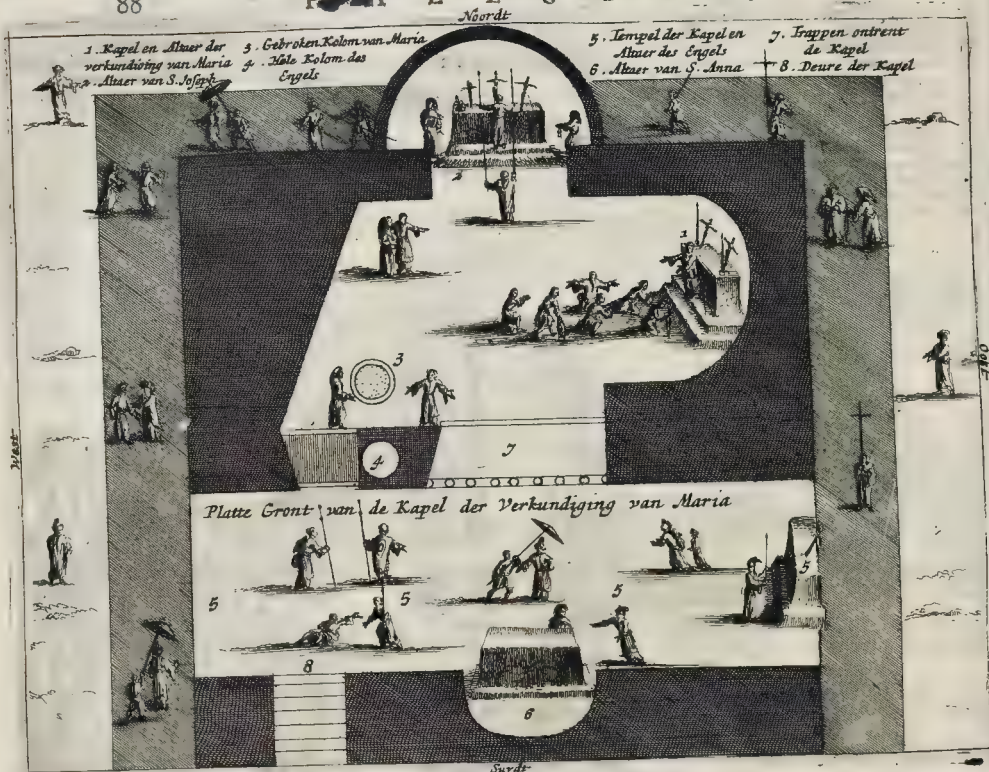 88
Noordt
1. Kapel en Altaer der
verkundiging van Maria
2. Altaer van S. Joseph
3. Gebroken Kolom van Maria
4. Hole Kolom des
Engels
5. Tempel der Kapel en
Altaer des Engels
6. Altaer van S. Anna
7. Trappen ontrent
de Kapel
8. Deure der Kapel
2
1
3
4
7
West
Oost
Platte Gront van de Kapel der Verkundiging van Maria
5
5
5
5
8
6
Suydt